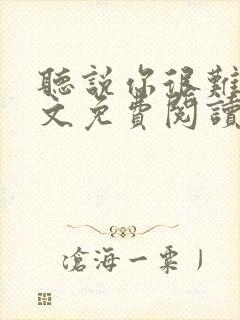 聽說你很難
文免費閱讀
滄海一粟丿